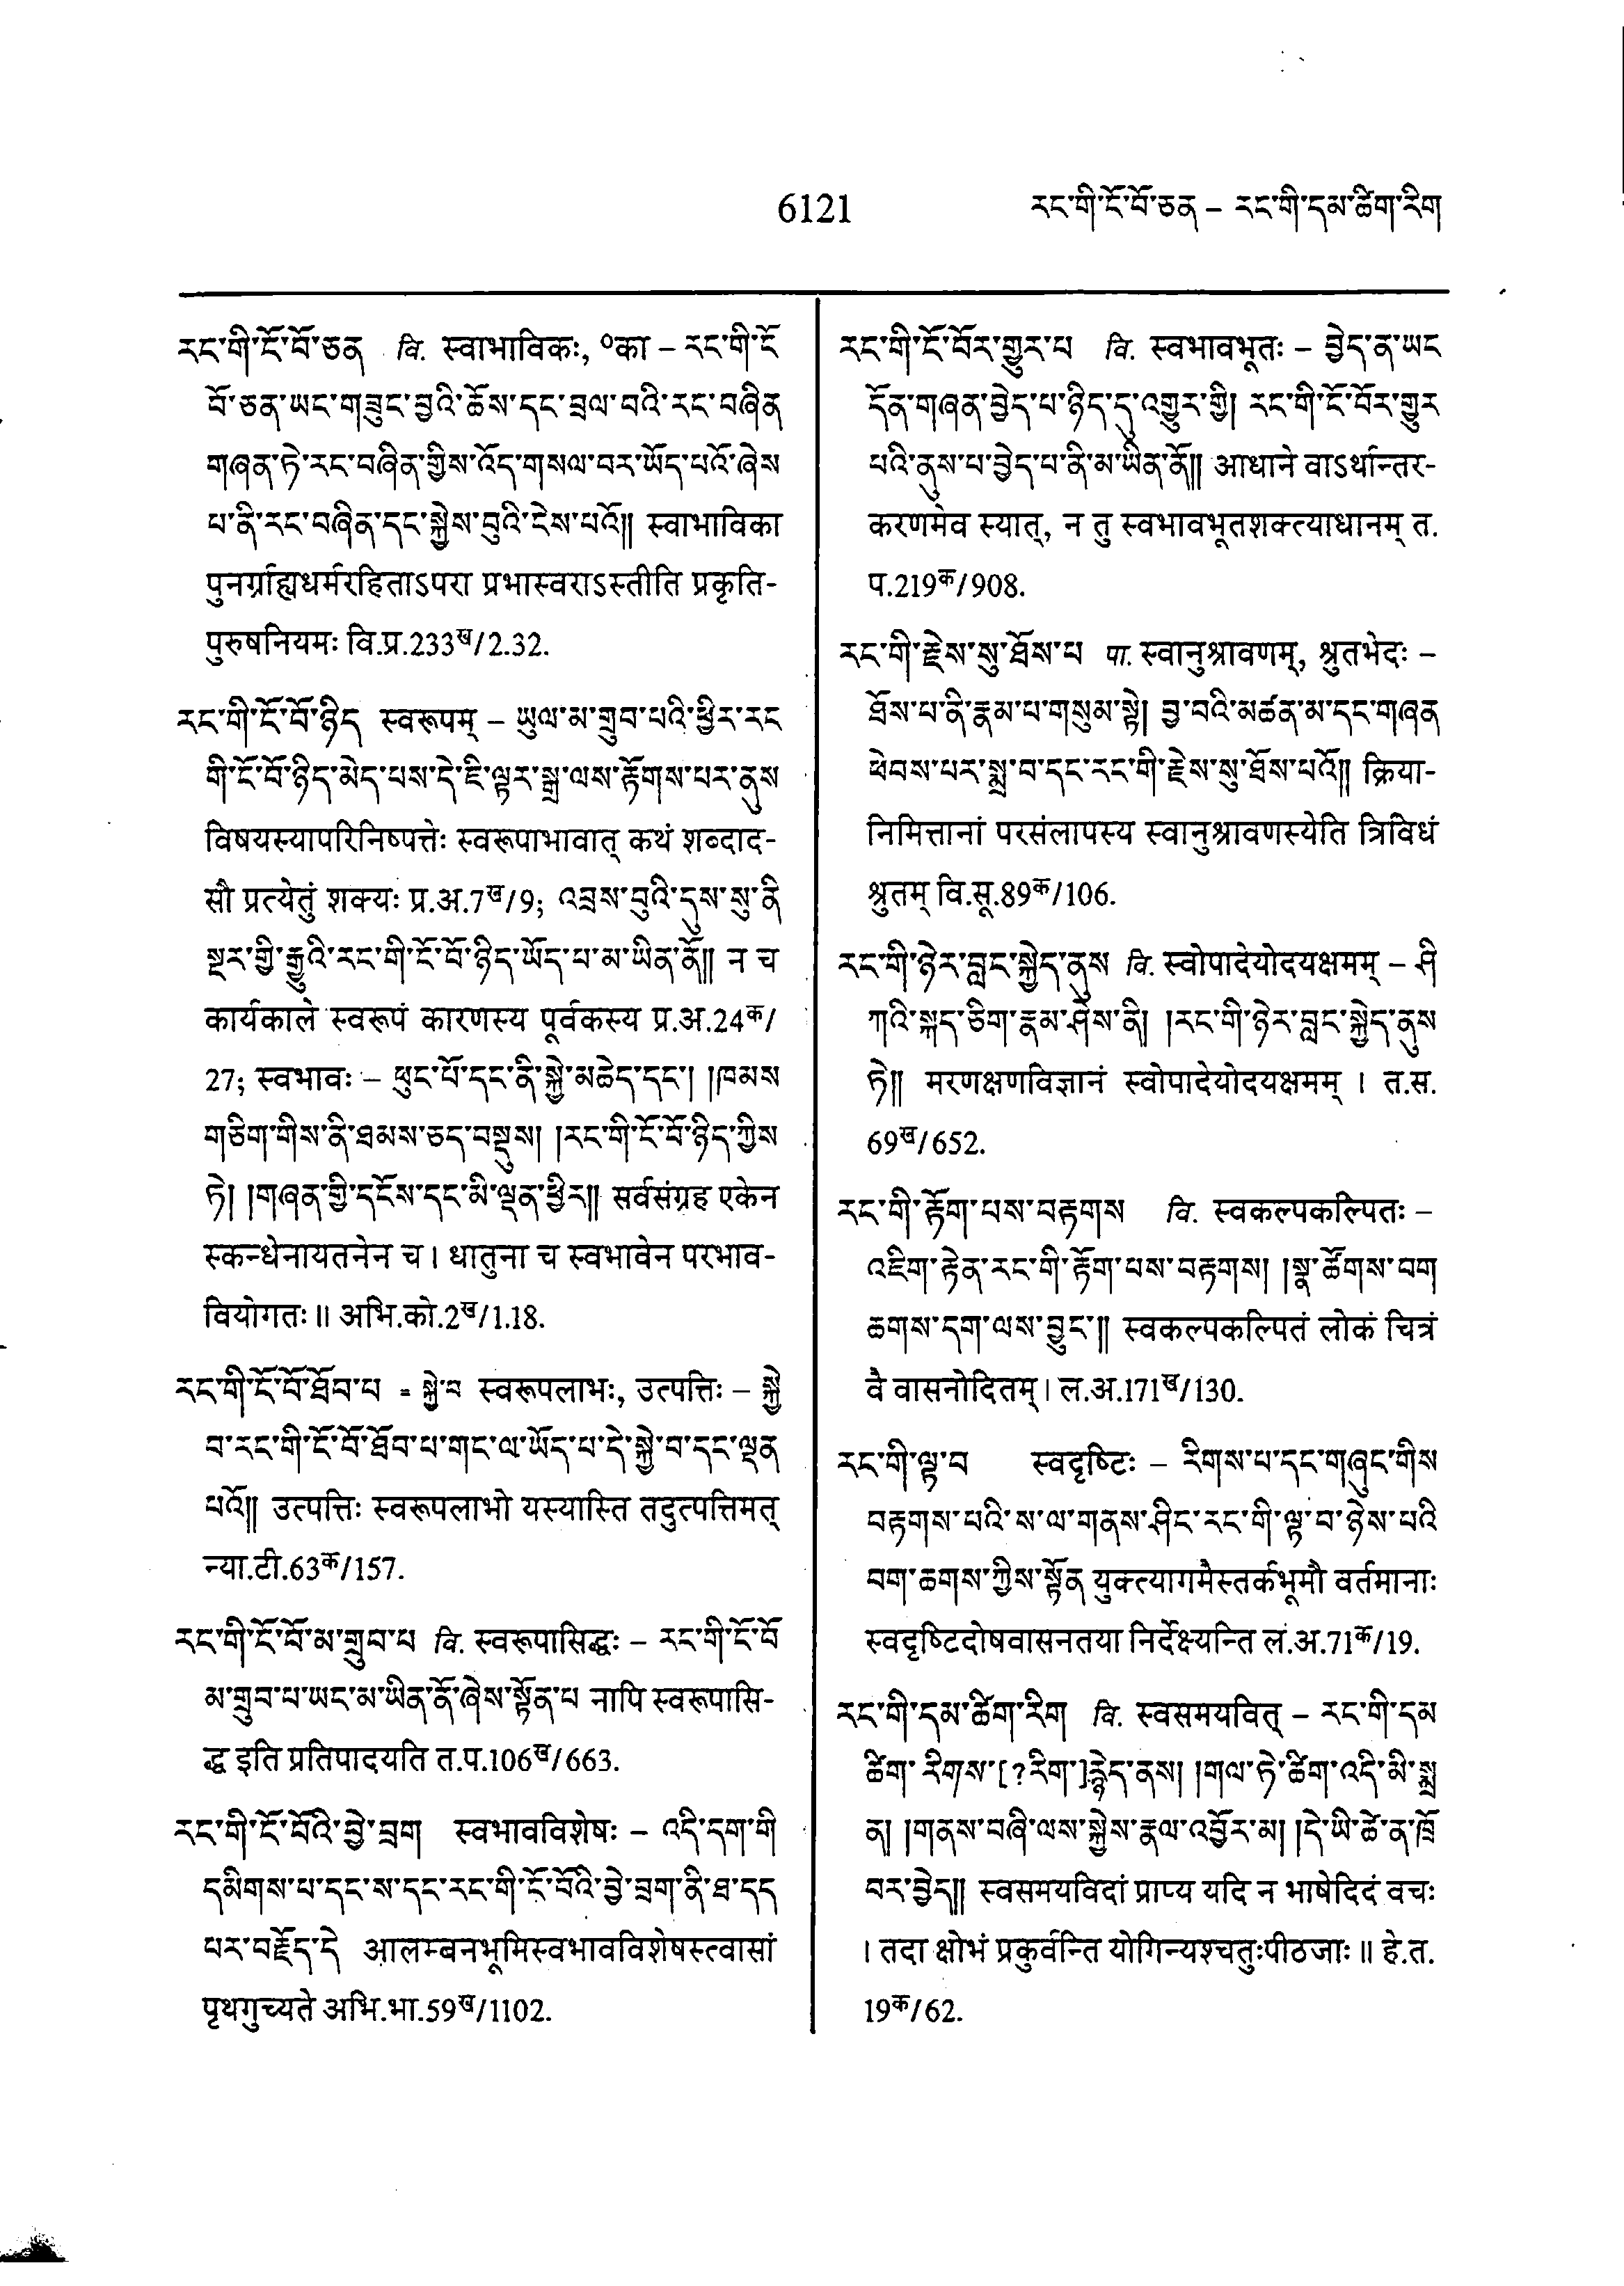 6121
རང་གི་ངོ་བོ་ཅན – རང་གི་དམ་ཚིག་རིག
རང་གི་ངོ་བོ་ཅན वि. स्वाभाविकः, ०का – རང་གི་ངོ
བོ་ཅན་ཡང་གཟུང་བྱའི་ཆོས་དང་བྲལ་བའི་རང་བཞིན
གཞན་ཏེ་རང་བཞིན་གྱིས་འོད་གསལ་བར་ཡོད་པའོ་ཞེས
པ་ནི་རང་བཞིན་དང་སྐྱེས་བུའི་ངེས་པའོ།། स्वाभाविका
पुनर्ग्राह्यधर्मरहिताऽपरा प्रभास्वराऽस्तीति प्रकृति-
पुरुषनियमः वि.प्र.233ख/2.32.
རང་གི་ངོ་བོ་ཉིད स्वरूपम् – ཡུལ་མ་གྲུབ་པའི་ཕྱིར་རང
གི་ངོ་བོ་ཉིད་མེད་པས་དེ་ཇི་ལྟར་སྒྲ་ལས་རྟོགས་པར་ནུས
विषयस्यापरिनिष्पत्तेः स्वरूपाभावात् कथं शब्दाद-
सौ प्रत्येतुं शक्यः प्र.अ.7ख/9; འབྲས་བུའི་དུས་སུ་ནི
སྔར་གྱི་རྒྱུའི་རང་གི་ངོ་བོ་ཉིད་ཡོད་པ་མ་ཡིན་ནོ།། न च
कार्यकाले स्वरूपं कारणस्य पूर्वकस्य प्र.अ.24क/
27; स्वभावः – ཕུང་པོ་དང་ནི་སྐྱེ་མཆེད་དང་། །ཁམས
གཅིག་གིས་ནི་ཐམས་ཅད་བསྡུས། །རང་གི་ངོ་བོ་ཉིད་ཀྱིས
ཏེ། །གཞན་གྱི་དངོས་དང་མི་ལྡན་ཕྱིར།། सर्वसंग्रह एकेन
स्कन्धेनायतनेन च । धातुना च स्वभावेन परभाव-
वियोगतः ॥ अभि.को.2ख/1.18.
རང་གི་ངོ་བོ་ཐོབ་པ = སྐྱེ་བ स्वरूपलाभः, उत्पत्तिः – སྐྱེ
བ་རང་གི་ངོ་བོ་ཐོབ་པ་གང་ལ་ཡོད་པ་དེ་སྐྱེ་བ་དང་ལྡན
པའོ།། उत्पत्तिः स्वरूपलाभो यस्यास्ति तदुत्पत्तिमत्
न्या.टी.63क/157.
རང་གི་ངོ་བོ་མ་གྲུབ་པ वि. स्वरूपासिद्धः – རང་གི་ངོ་བོ
མ་གྲུབ་པ་ཡང་མ་ཡིན་ནོ་ཞེས་སྟོན་པ नापि स्वरूपासि-
द्ध इति प्रतिपादयति त.प.106ख/663.
རང་གི་ངོ་བོའི་བྱེ་བྲག स्वभावविशेषः – འདི་དག་གི
དམིགས་པ་དང་ས་དང་རང་གི་ངོ་བོའི་བྱེ་བྲག་ནི་ཐ་དད
པར་བརྗོད་དེ आलम्बनभूमिस्वभावविशेषस्त्वासां
पृथगुच्यते अभि.भा.59ख/1102.
རང་གི་ངོ་བོར་གྱུར་པ वि. स्वभावभूतः – བྱེད་ན་ཡང
དོན་གཞན་བྱེད་པ་ཉིད་དུ་འགྱུར་གྱི། རང་གི་ངོ་བོར་གྱུར
པའི་ནུས་པ་བྱེད་པ་ནི་མ་ཡིན་ནོ།། आधाने वाऽर्थान्तर-
करणमेव स्यात्, न तु स्वभावभूतशक्त्याधानम् त.
प.219क/908.
རང་གི་རྗེས་སུ་ཐོས་པ पा. स्वानुश्रावणम्, श्रुतभेदः –
ཐོས་པ་ནི་རྣམ་པ་གསུམ་སྟེ། བྱ་བའི་མཚན་མ་དང་གཞན
ཕེབས་པར་སྨྲ་བ་དང་རང་གི་རྗེས་སུ་ཐོས་པའོ།། क्रिया-
निमित्तानां परसंलापस्य स्वानुश्रावणस्येति त्रिविधं
श्रुतम् वि.सू.89क/106.
རང་གི་ཉེར་བླང་སྐྱེད་ནུས वि. स्वोपादेयोदयक्षमम् – ཤི
ཀའི་སྐད་ཅིག་རྣམ་ཤེས་ནི། །རང་གི་ཉེར་བླང་སྐྱེད་ནུས
ཏེ།། मरणक्षणविज्ञानं स्वोपादेयोदयक्षमम् । त.स.
69ख/652.
རང་གི་རྟོག་པས་བརྟགས वि. स्वकल्पकल्पितः –
འཇིག་རྟེན་རང་གི་རྟོག་པས་བརྟགས། །སྣ་ཚོགས་བག
ཆགས་དག་ལས་བྱུང་།། स्वकल्पकल्पितं लोकं चित्रं
वै वासनोदितम् । ल.अ.171ख/130.
རང་གི་ལྟ་བ स्वदृष्टिः – རིགས་པ་དང་གཞུང་གིས
བརྟགས་པའི་ས་ལ་གནས་ཤིང་རང་གི་ལྟ་བ་ཉེས་པའི
བག་ཆགས་ཀྱིས་སྟོན युक्त्यागमैस्तर्कभूमौ वर्तमानाः
स्वदृष्टिदोषवासनतया निर्देक्ष्यन्ति लं.अ.71क/19.
རང་གི་དམ་ཚིག་རིག वि. स्वसमयवित् – རང་གི་དམ
ཚིག་ རིགས་[?རིག་]རྙེད་ནས། །གལ་ཏེ་ཚིག་འདི་མི་སྨྲ
ན། །གནས་བཞི་ལས་སྐྱེས་རྣལ་འབྱོར་མ། །དེ་ཡི་ཚེ་ན་ཁྲོ
བར་བྱེད།། स्वसमयविदां प्राप्य यदि न भाषेदिदं वचः
। तदा क्षोभं प्रकुर्वन्ति योगिन्यश्चतुःपीठजाः ॥ हे.त.
19क/62.